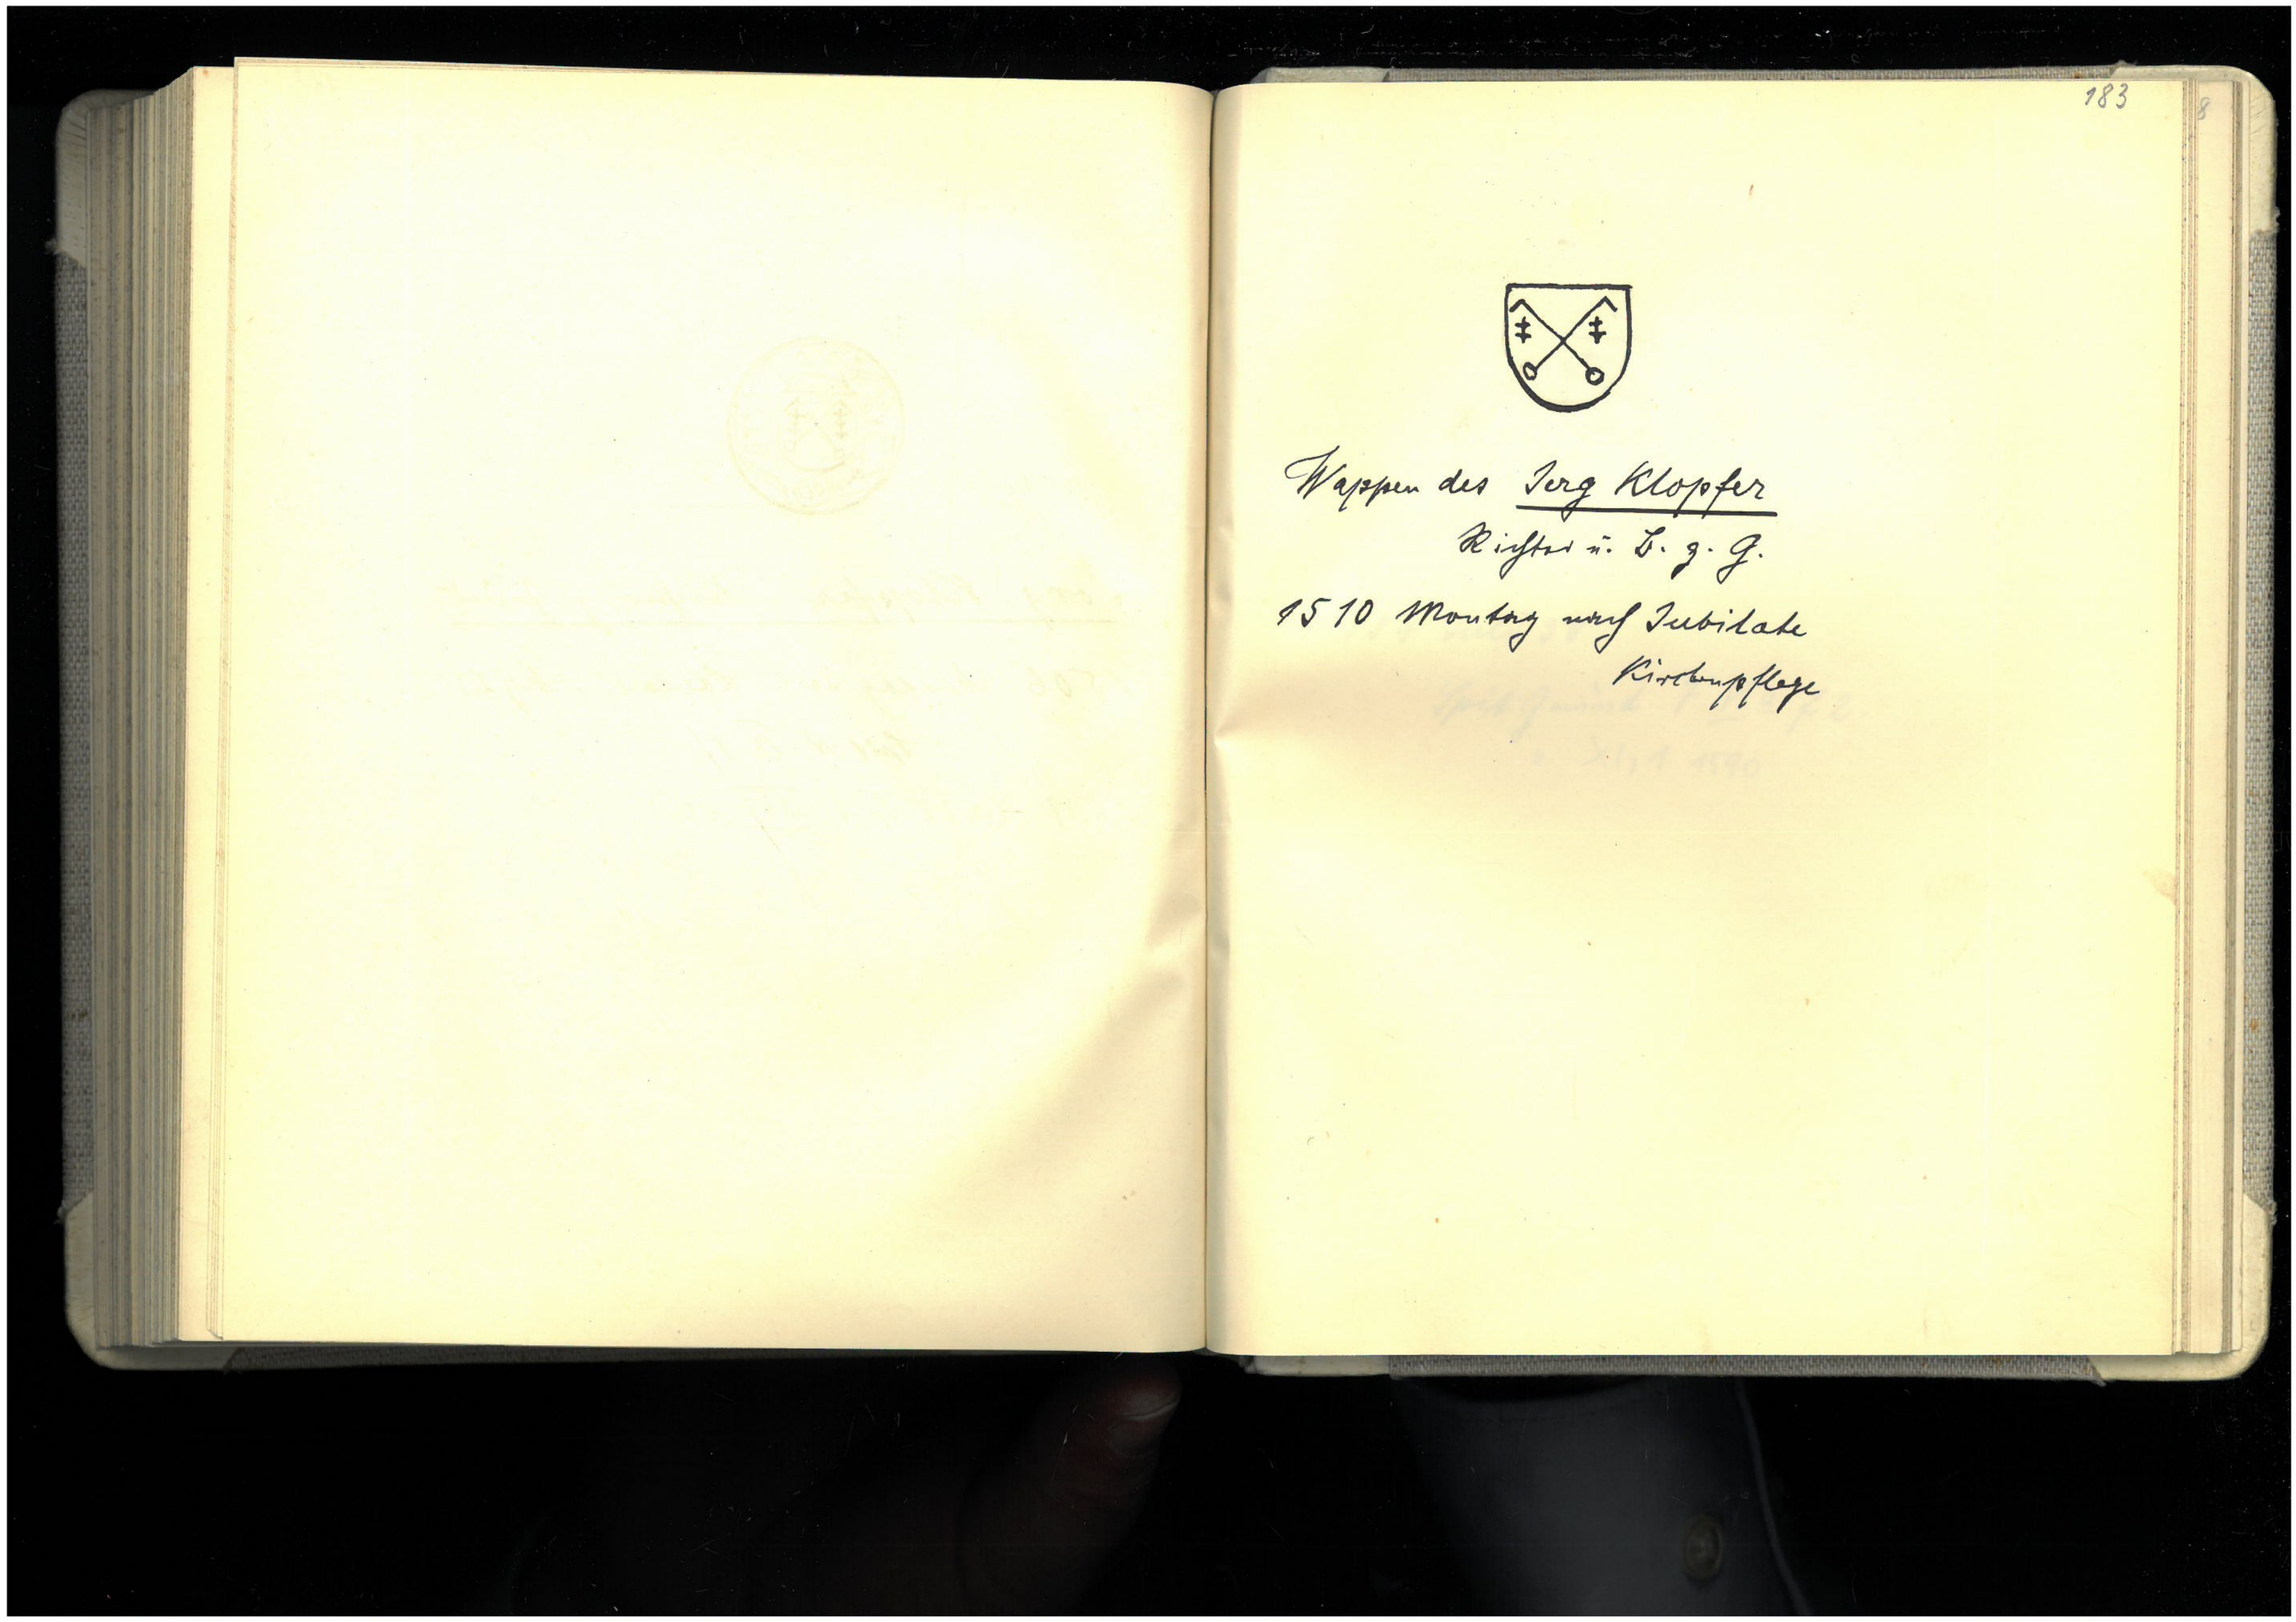 183
8
Wappen des Jerg Klopfer
Richter u. B. z. G.
1510 Montag nach Jubilate
Kirchenpflege